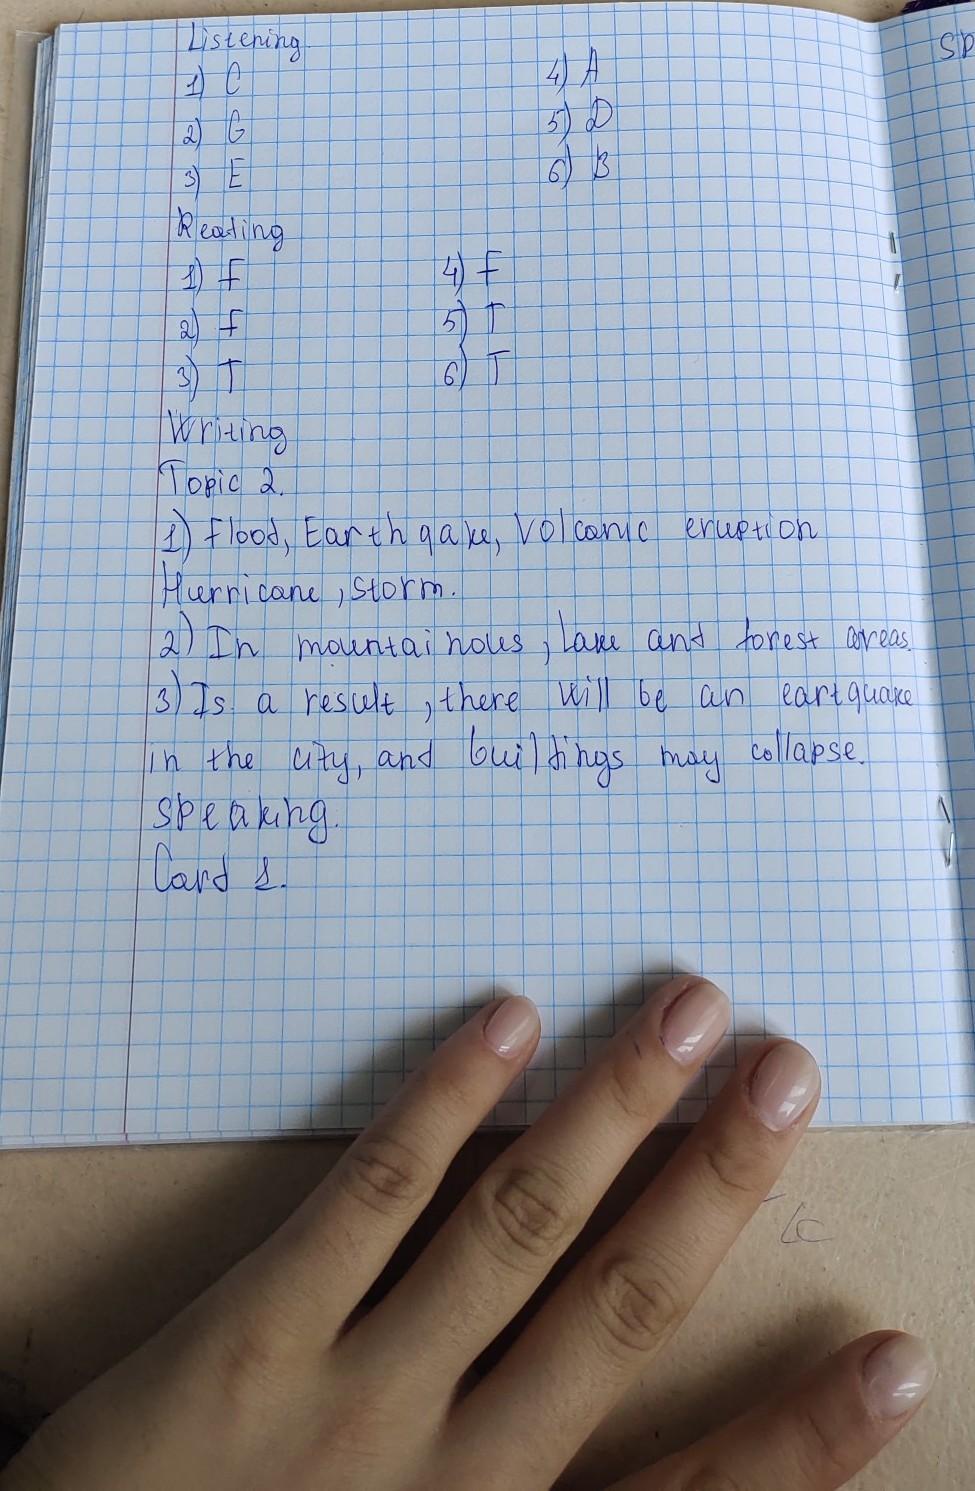 Listening
1) C 4) A
2) G 5) D
3) E 6) B
Reading
1) F 4) F
2) F 5) T
3) T 6) T
Writing
Topic 2.
1) Flood, Earthqake, Volcanic eruption
Hurricane, storm.
2) In mountainous, lake and forest areas.
3) Is a result, there will be an eartquake
in the city, and buildings may collapse.
Speaking.
Card 1.
SP